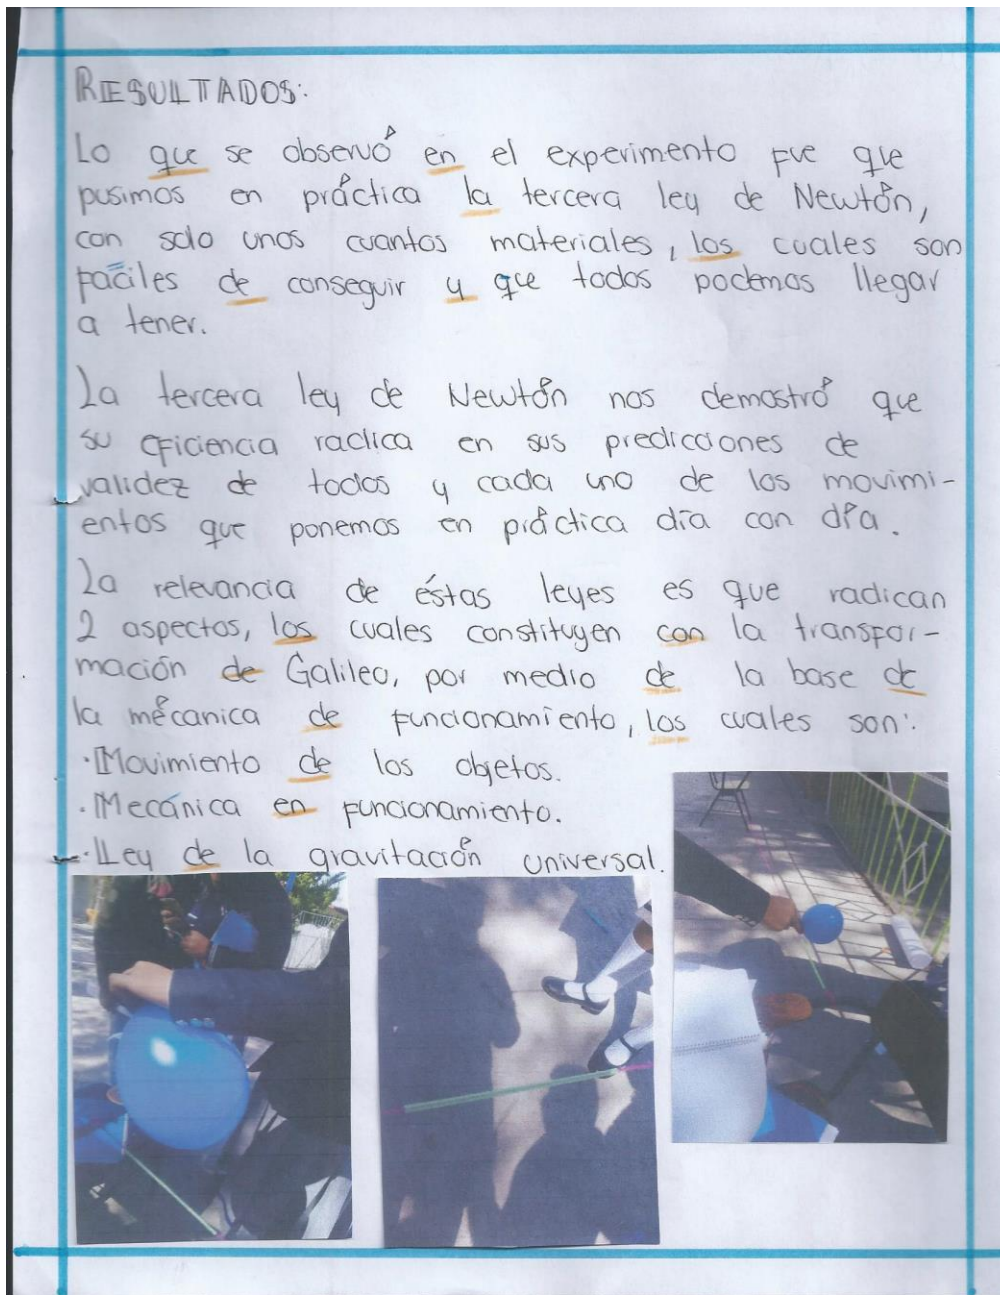 RESULTADOS:
Lo que se observó en el experimento fue que
pusimos en práctica la tercera ley de Newtón,
con solo unos cuantos materiales, los cuales son
fáciles de conseguir y que todos podemos llegar
a tener.
La tercera ley de Newtón nos demostró que
su eficiencia radica en sus predicciones de
validez de todos y cada uno de los movimi-
entos que ponemos en práctica día con día.
La relevancia de éstas leyes es que radican
2 aspectos, los cuales constituyen con la transfor-
mación de Galileo, por medio de la base de
la mécanica de funcionamiento, los cuales son:
·Movimiento de los objetos.
·Mecánica en funcionamiento.
·Ley de la gravitación universal.